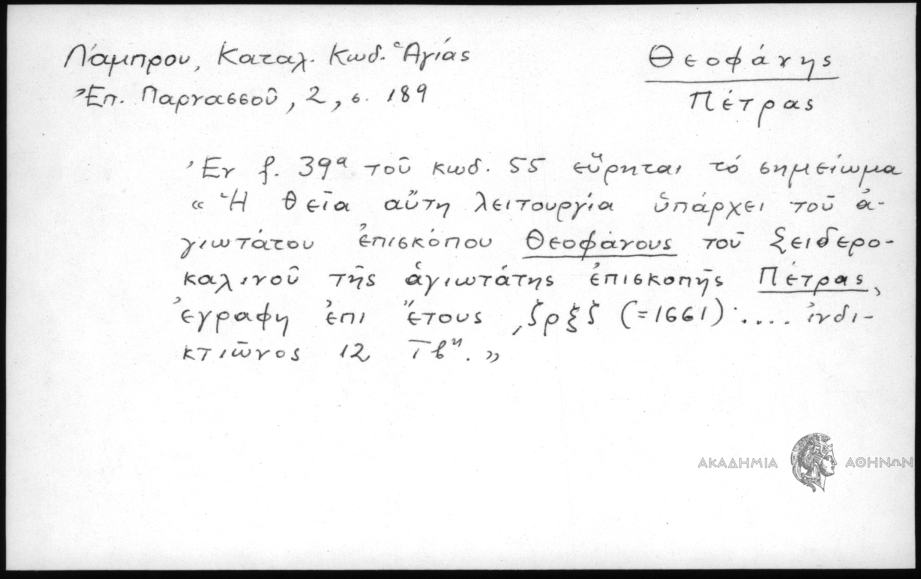 Λάμπρου, Καταλ. Κωδ. Ἁγίας
Ἐπ. Παρνασσοῦ, 2, σ. 189
Θεοφάνης
Πέτρας
Ἐν f. 39α τοῦ κωδ. 55 εὕρηται τό σημείωμα
« Ἡ θεῖα αὕτη λειτουργία ὑπάρχει τοῦ ἁ-
γιωτάτου ἐπισκόπου Θεοφάνους τοῦ Ξειδερο-
καλινοῦ τῆς ἁγιωτάτης ἐπισκοπῆς Πέτρας,
ἐγραφη ἐπι ἔτους ͵ζρξζ (=1661) .... ἰνδι-
κτιῶνος 12 »
ΑΚΑΔΗΜΙΑ ΑΘΗΝΩΝ